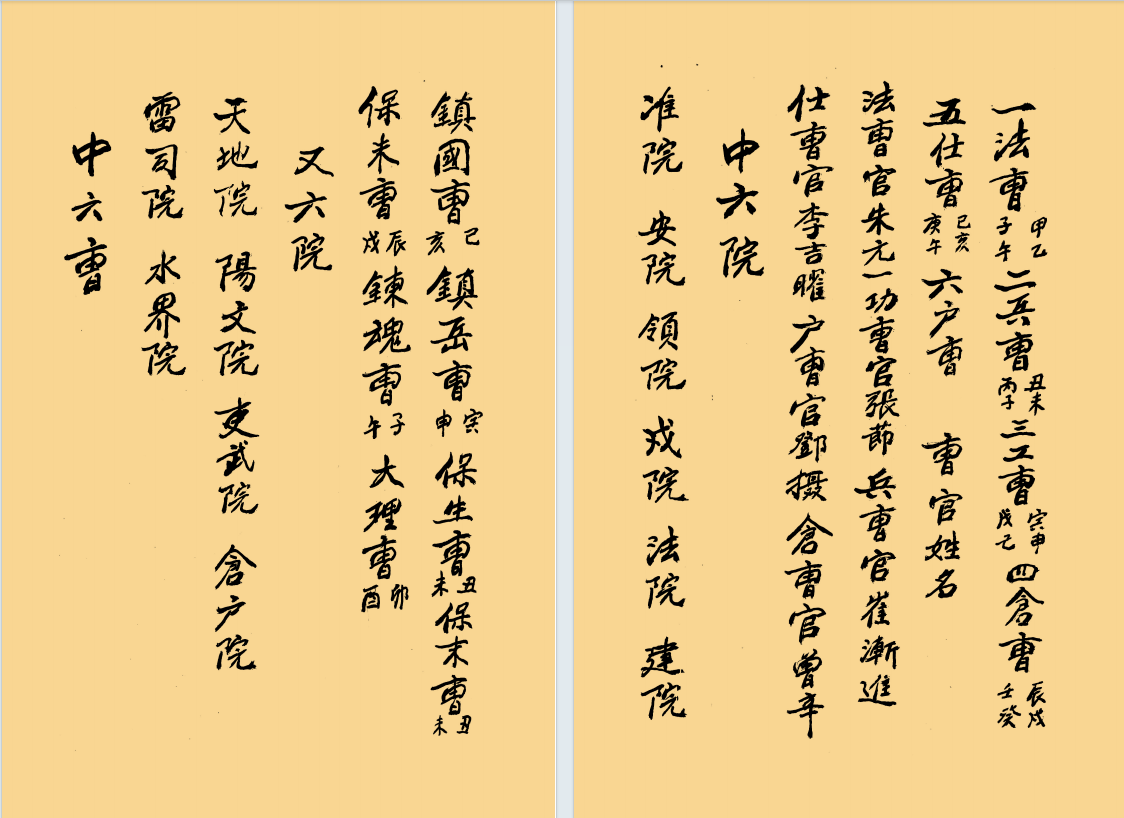 一法曹甲乙子午二兵曹丑未丙子三工曹寅申戊己四倉曹辰戌壬癸
五仕曹巳亥庚午六户曹 曹官姓名
法曹官朱元一功曹官張節兵曹官崔漸進
仕曹官李吉曜户曹官鄧摄倉曹官曾辛
中六院
准院 安院 領院 戍院 法院 建院
鎮國曹巳亥鎮岳曹寅申保生曹丑未保末曹丑未
保未曹辰戌錬魂曹子午大理曹卯酉
又六院
天地院 陽文院 吏武院 倉户院
雷司院 水界院
中六曹